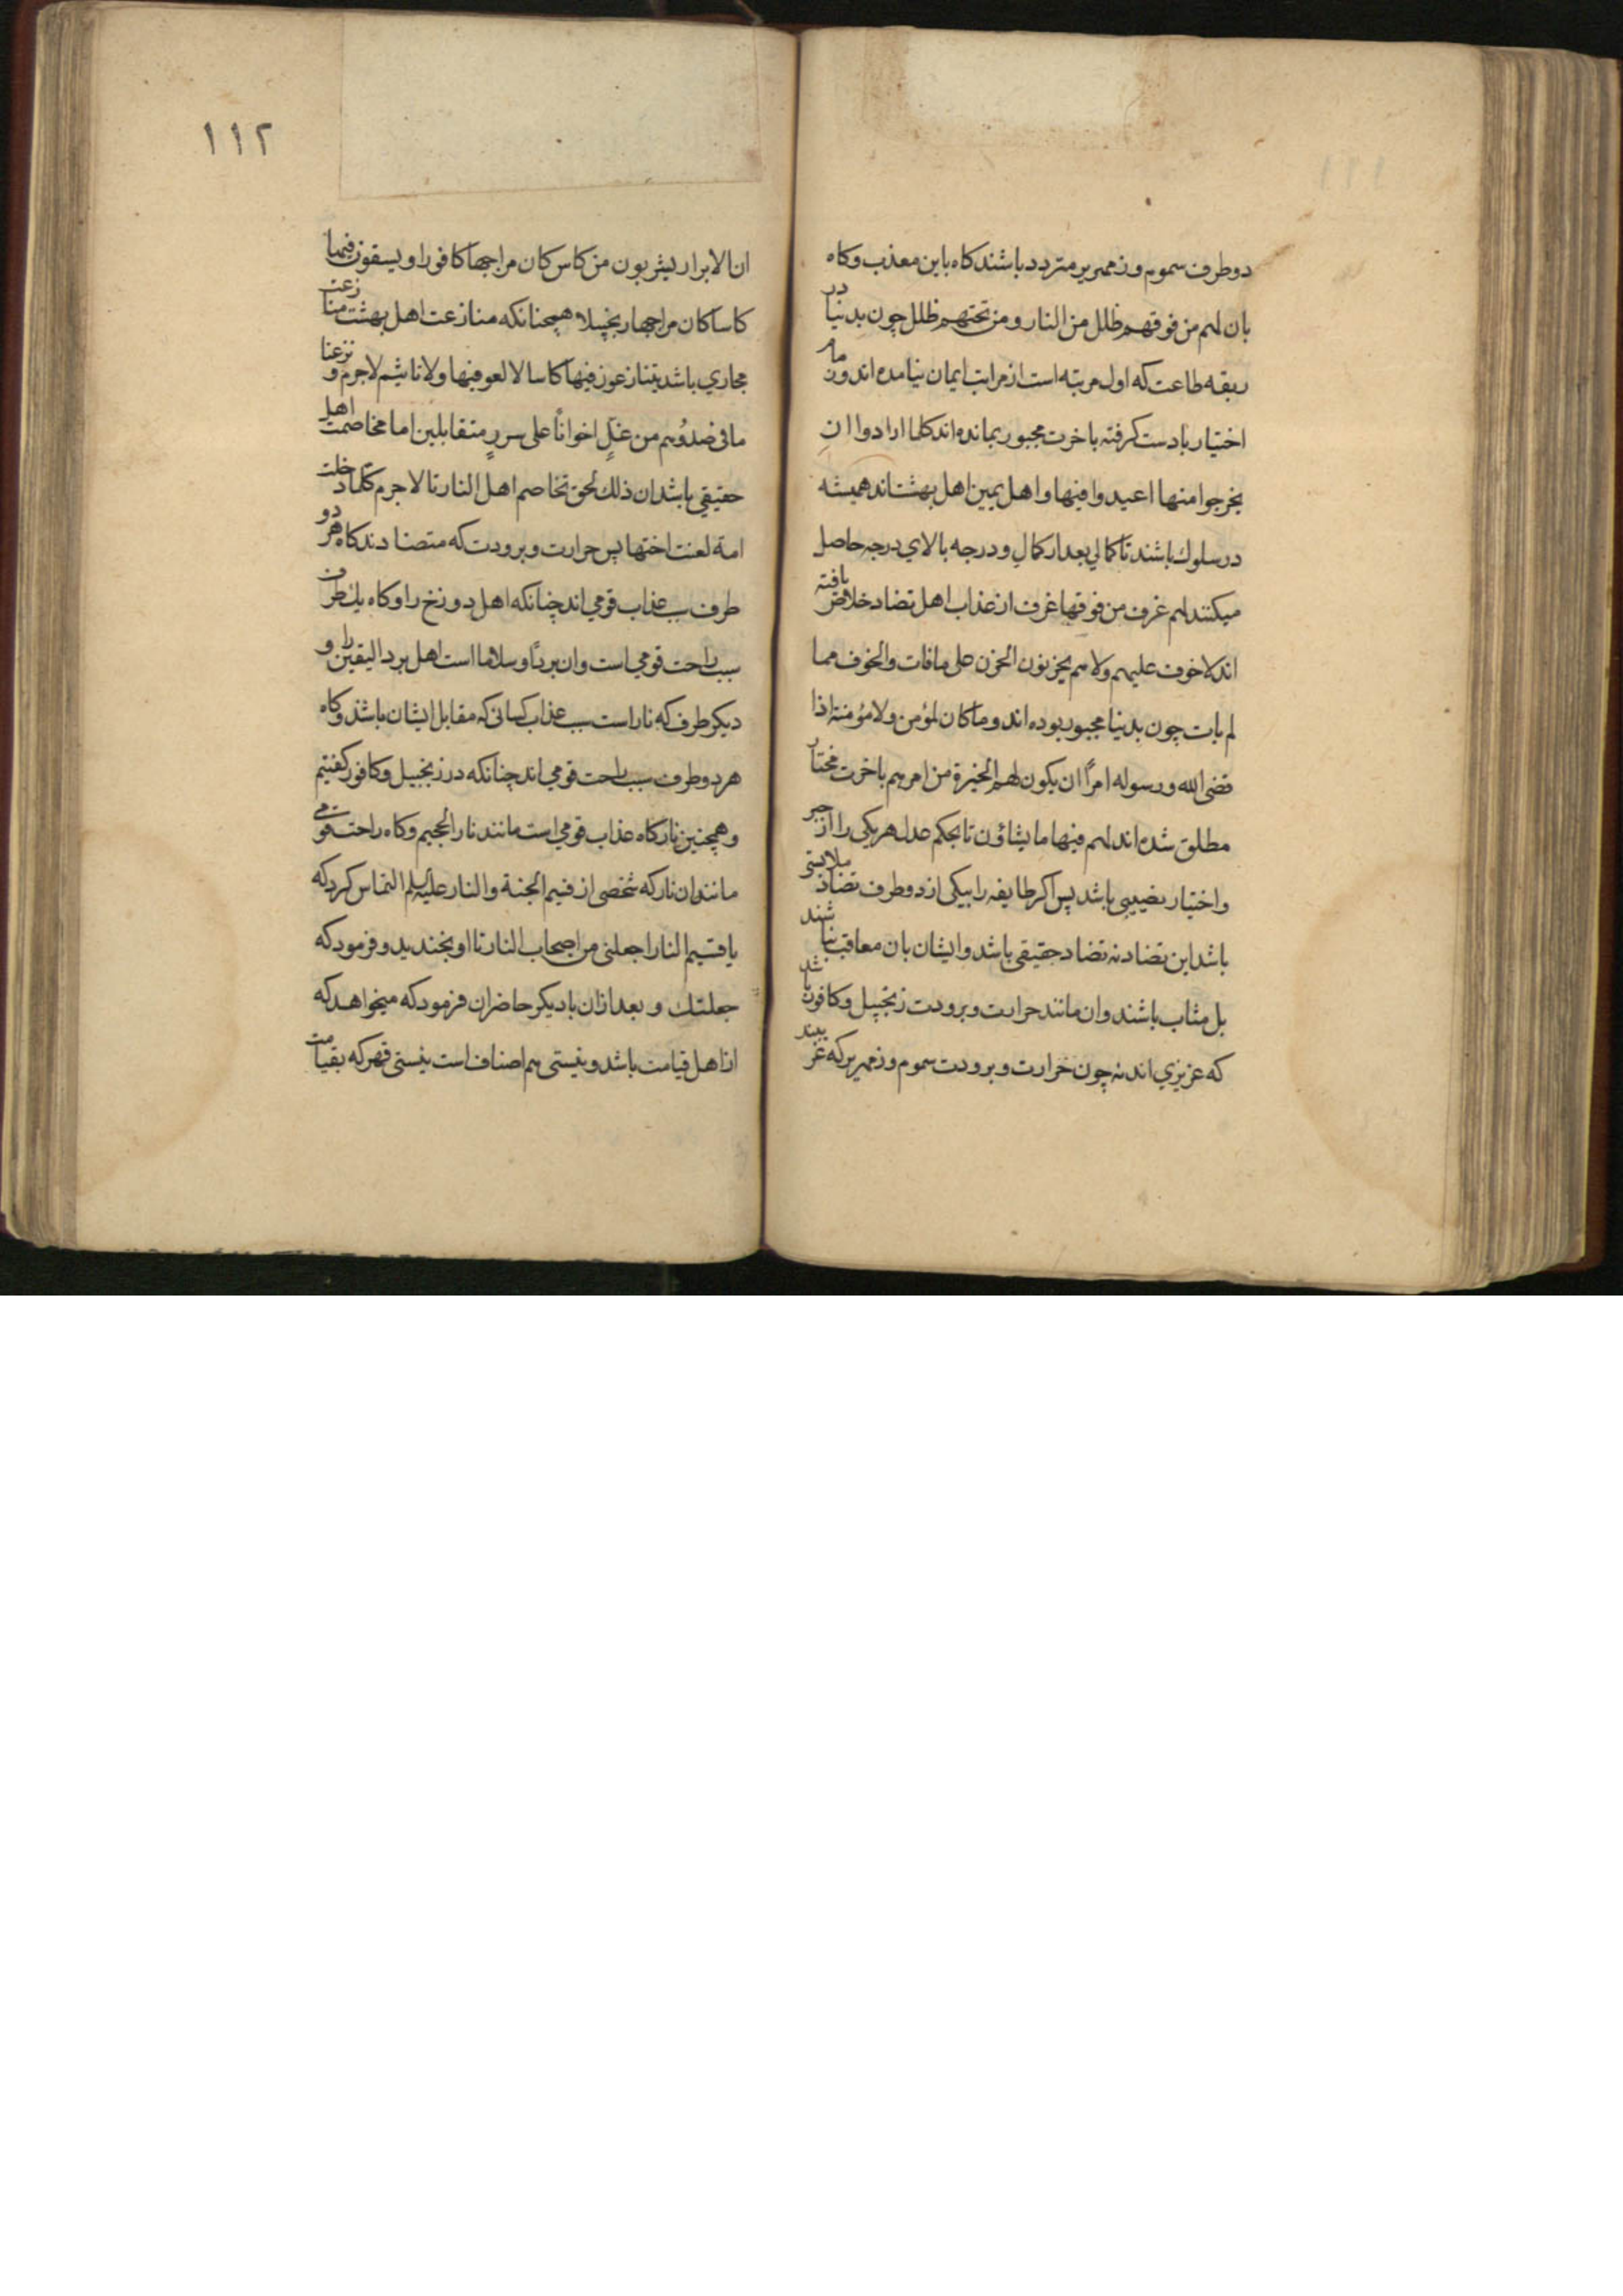 دو طرف سموم و زمهریر متردد باشند کاه باین معذب وکاه
بان لهم من فوقهم ظلل من النار و من تحتهم ظلل چون بدنیا در
ربقه طاعت که اول مرتبه است از مراتب ایمان نیامده اند و زمام
اختیار بادست کرفته باخرت مجبور بمانده اند کلما ارادوا ان
یخرجوا منها اعیدوا فیها و اهل یمین اهل بهشت اند همیشه
در سلوک باشند تا کمالی بعد از کمال و درجه بالای درجه حاصل
میکنند لهم غرف من فوقها غرف از عذاب اهل تضاد خلاص یافته
اند لا خوف علیهم ولا هم یحزنون الحزن علی مافات والخوف مما
لم یات چون بدنیا مجبور بوده اند و ما کان لمؤمن ولا مؤمنة اذا
قضی الله ورسوله امراً ان یکون لهم الخیرة من امرهم باخرت مختار
مطلق شده اند لهم فیها ما یشاؤن تا بحکم عدل هر یکی را از جبر
واختیار نصیبی باشد پس اکر طایفه را بیکی از دو طرف تضاد ملابستی
باشد این تضاد نه تضاد حقیقی باشد وایشان بان معاقب نباشند
بل مثاب باشند وان مانند حرارت و برودت زنجبیل وکافور باشد
که عزیزی اند نه چون حرارت و برودت سموم و زمهریر که
۱۱۲
ان الابرار یشربون من کاس کان مزاجها کافورا و یسقون فیها
کاسا کان مزاجها زنجبیلا و همچنانکه منازعت اهل بهشت منازعت
مجازی باشد یتنازعون فیها کاسا لا لغو فیها ولا تاثیم لاجرم و نزعنا
ما فی صدورهم من غلٍ اخواناً علی سررٍ متقابلین اما مخاصمت اهل
حقیقی باشد ان ذلک لحق تخاصم اهل النار تا لاجرم کلما دخلت
امة لعنت اختها پس حرارت و برودت که متضادند کاه هر دو
طرف سبب عذاب قومی اند چنانکه اهل دوزخ را وکاه یک طرف
سبب راحت قومی است وان برداً وسلاما است اهل برد الیقین را و
دیکر طرف که نار است سبب عذاب کسانی که مقابل ایشان باشند وکاه
هر دو طرف سبب راحت قومی اند چنانکه در زنجبیل وکافور کفتیم
و همچنین نار کاه عذاب قومی است مانند نار الجحیم وکاه راحت قومی
مانند ان نار که شخصی از قسیم الجنة والنار علیه السلم التماس کرد که
یا قسیم النار اجعلنی من اصحاب النار تا او بخندید و فرمود که
جعلتک و بعد ازان با دیکر حاضران فرمود که میخواهد که
از اهل قیامت باشد و نیستی هم اصناف است نیستی قهر که بقیامت